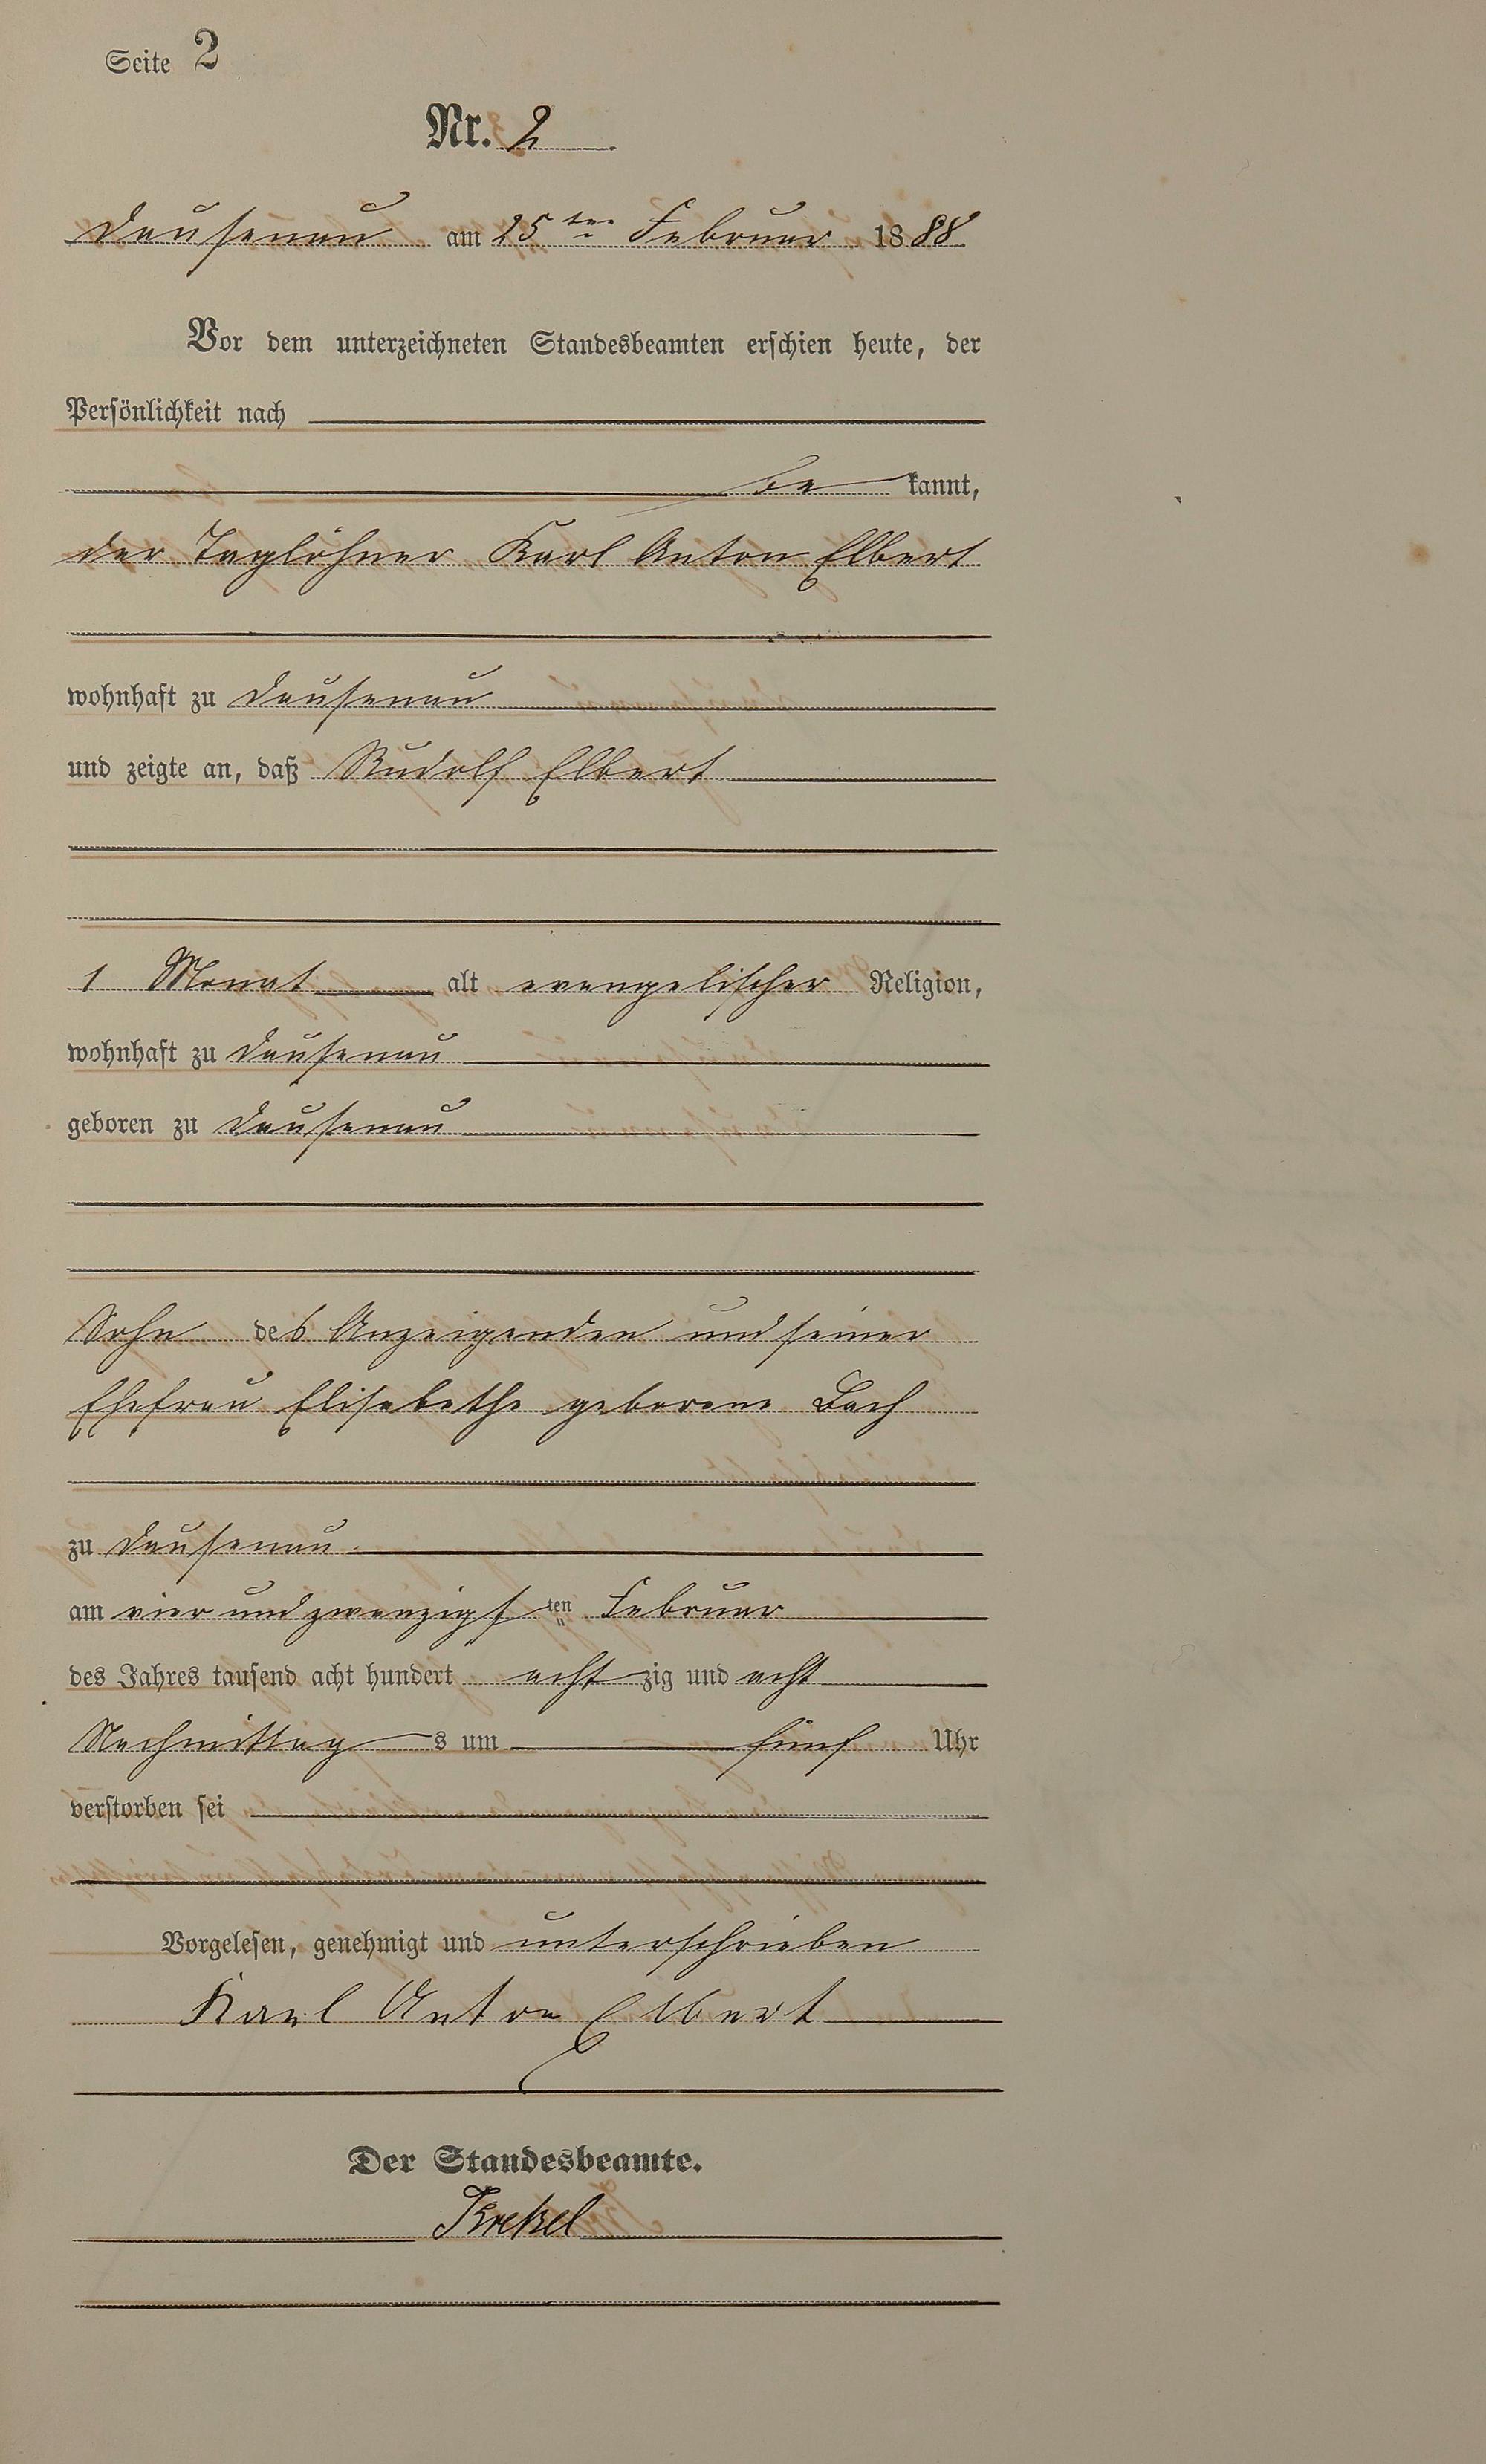 Seite 2
Nr. 2
Dausenau am 25ten Februar 1888
Vor dem unterzeichneten Standesbeamten erschien heute, der
Persönlichkeit nach
be kannt,
der Taglöhner Karl Anton Elbert
wohnhaft zu Dausenau
und zeigte an, daß Rudolf Elbert
1 Monat alt evangelischer Religion,
wohnhaft zu Dausenau
geboren zu Dausenau
Sohn des Anzeigenden und seiner
Ehefrau Elisabethe geborene Bach
zu Dausenau
am vier und zwanzigsten Februar
des Jahres tausend acht hundert acht zig und acht
Nachmittag s um fünf Uhr
verstorben sei
Vorgelesen, genehmigt und unterschrieben
Karl Anton Elbert
Der Standesbeamte.
Krekel